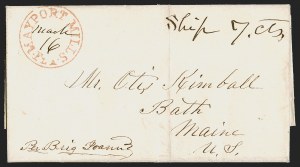 MAYPORT MILLS
March
16
Ship 7 cts
Mr. Otis Kimball
Bath
Maine
U. S.
Per Brig Joann